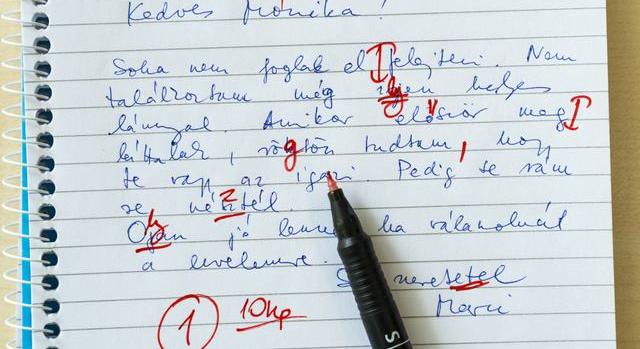 Kedves Mónika!
Soha nem foglak el felejteni. Nem
találkoztam még ijen helyes
lányal. Amikor elősiör meg
láttalak, rögtön tudtam, hogy
te vagy az igazi. Pedig se rám
z
se nésztél.
Ojan jó lenne ha válaszolnál
a levelemre.
szeretetel
Marci
1 10kp
S